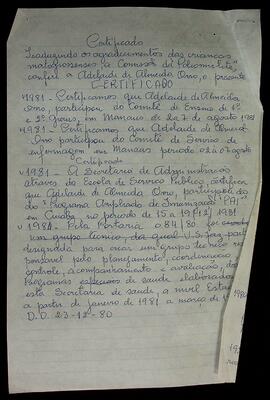 Certificado
Traduzindo os agradecimentos das crianças
matogrossenses a Comissão da Poliomielite
confere a Adelaide de Almeida Orro, o presente
CERTIFICADO
1981 - Certificamos que Adelaide de Almeida
Orro, participou do Comitê de Ensino de 1º
e 2º Graus, em Manaus de 2 a 7 de agosto 1981
1981 - Certificamos que Adelaide de Almeida
Orro participou do Comitê de Serviço de
informagem em Manaus período 02 a 07 agosto
Certificado
1981 - A Secretaria de Administração
através da Escola de Serviço Público
que Adelaide de Almeida Orro, participou do
do "Programa Ampliado de Imunização" "PAI"
em Cuiabá no período de 15 a 19/12/1981
1981 - Pela Portaria 0.84/80 foi
um grupo técnico, do qual V.S. faz parte
designada para criar um grupo técnico res
ponsável pelo planejamento, coordenação
controle, acompanhamento e avaliação, dos
Programas especiais de saúde elaborados
esta Secretaria de saúde, a nível Esta
a partir de janeiro de 1981 a março de
D.O. 23-12-80